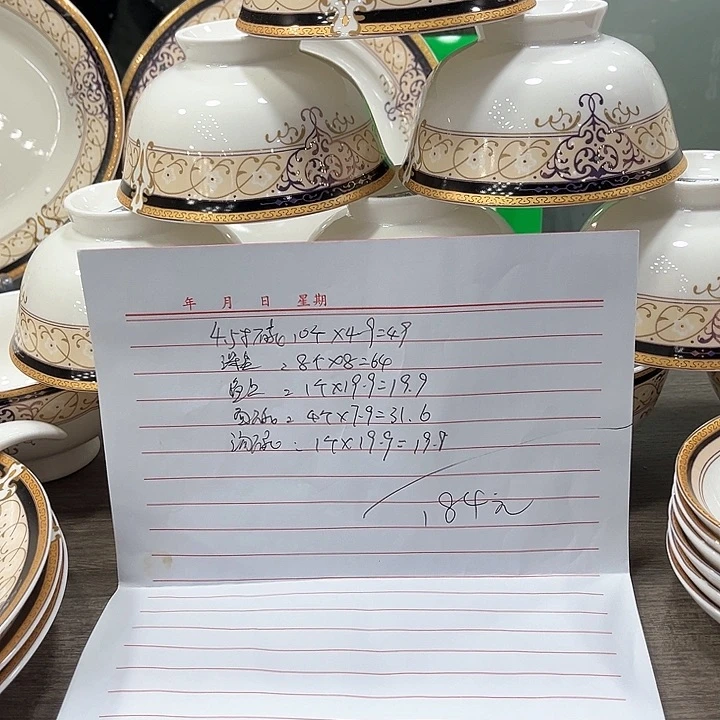 年 月 日 星期
4.5寸碗:10个×4.9=49
深盘:8个×8=64
鱼盘:1个×19.9=19.9
面碗:4个×7.9=31.6
汤碗:1个×19.9=19.9
184元